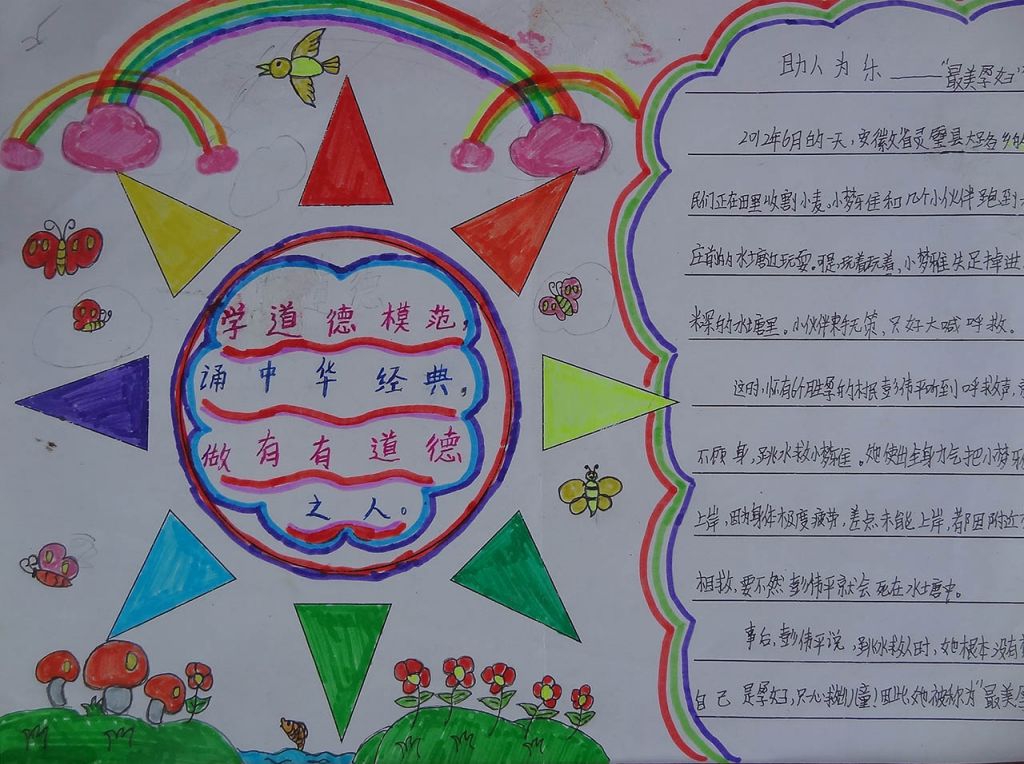 学道德模范，
诵中华经典，
做有有道德
之人。
助人为乐——“最美孕妇”
2012年6月的一天，安徽省灵璧县大路乡的
民们正在田里收割小麦。小梦雅和几个小伙伴跑到
庄前的水塘边玩耍。可是玩着玩着，小梦雅失足掉进
米深的水塘里。小伙伴束手无策，只好大喊呼救。
这时，怀有6个月胜孕的村民彭伟平听到呼救声，
不顾身，跳水救小梦雅。她使出全身力气把小梦雅
上岸，因为身体极度疲劳，差点未能上岸，都因附近
相救，要不然彭伟平就会死在水塘中。
事后，彭伟平说，跳水救人时，她根本没有
自己是孕妇，只心救儿童！因此她被称为“最美孕